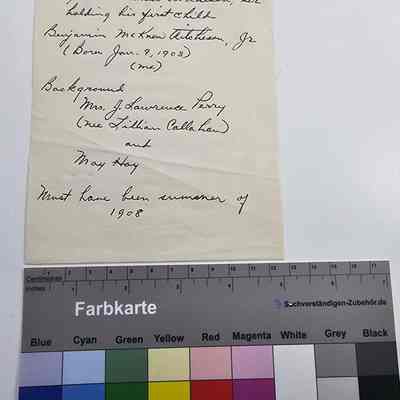 holding his first child
Benjamin McKnew Aitcheson, Jr
(Born Jan. 9, 1908)
(me)
Background
Mrs. J. Lawrence Perry
(nee Lillian Callahan)
and
May Hoy
Must have been summer of
1908
Centimetres
Inches
Farbkarte
Sachverständigen-Zubehör.de
Blue Cyan Green Yellow Red Magenta White Grey Black